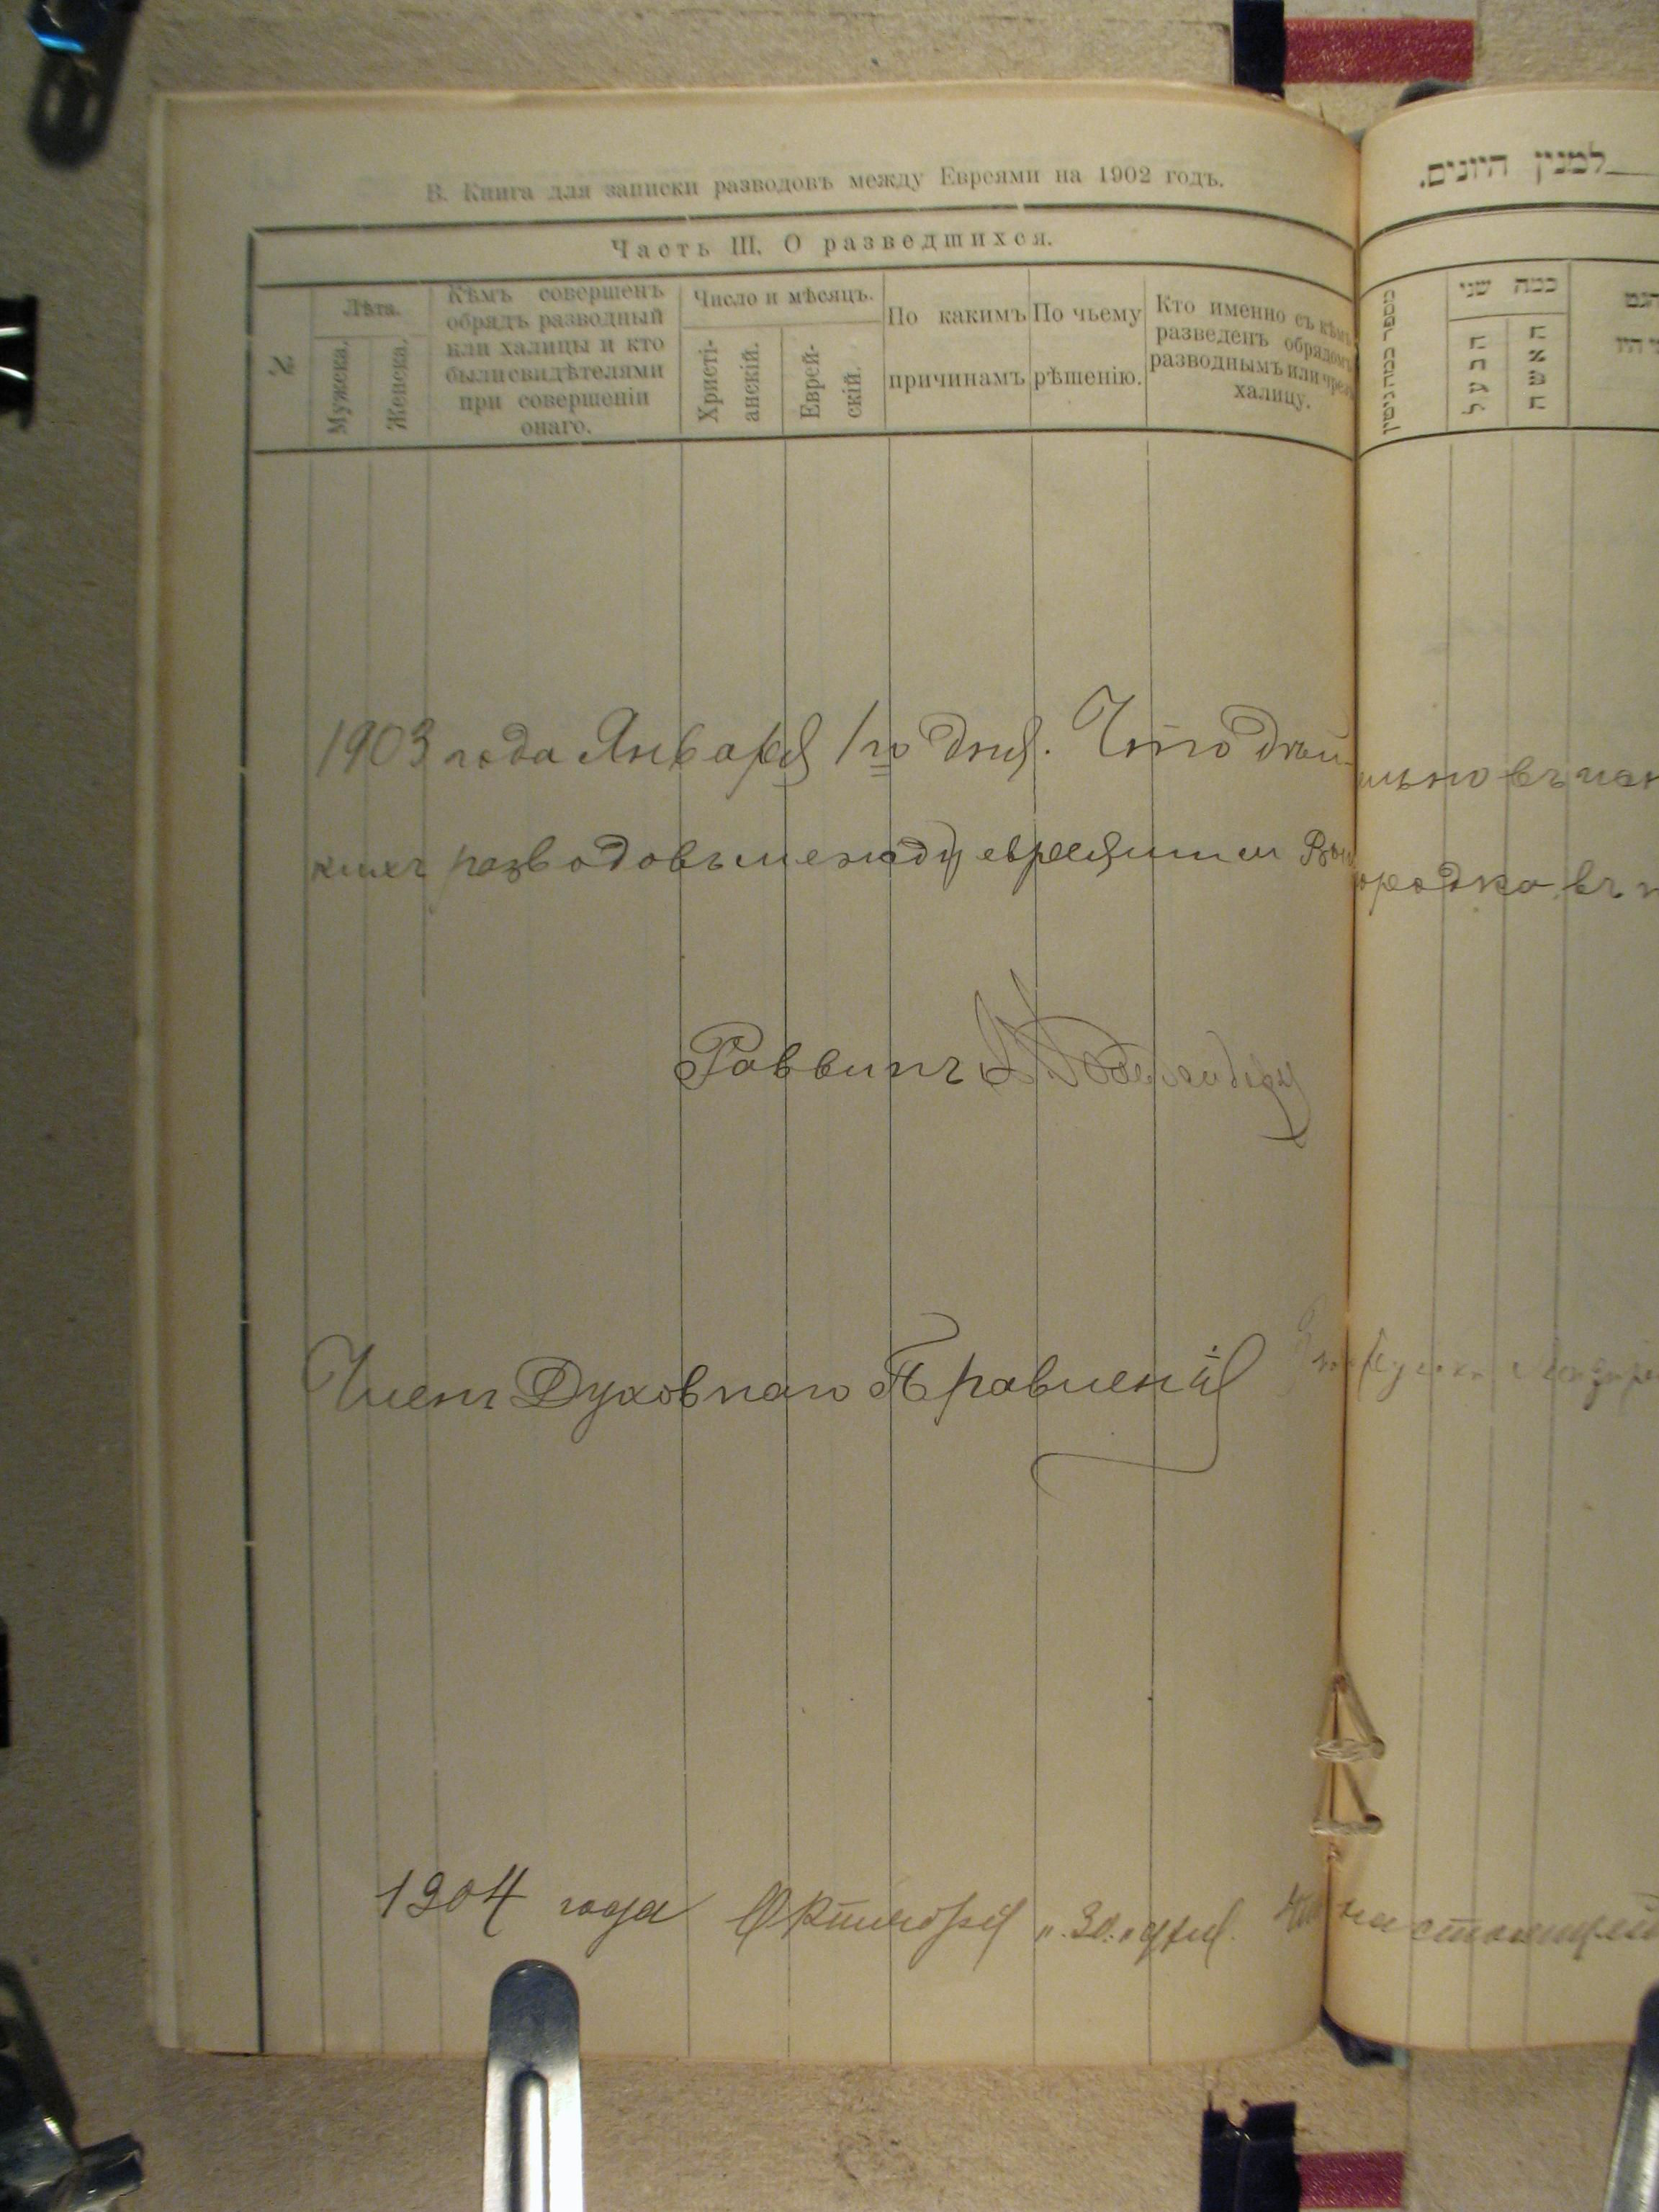 В. Книга для записки разводовъ между Евреями на 1902 годъ.
למנין היונים.
Часть III. О разведшихся.
№
Лѣта.
Мужеска.
Женска.
Кѣмъ совершенъ
обрядъ разводный
или халицы и кто
были свидѣтелями
при совершеніи
онаго.
Число и мѣсяцъ.
Христі-
анскій.
Еврей-
скій.
По какимъ
причинамъ
По чьему
рѣшенію.
Кто именно съ кѣмъ
разведенъ обрядомъ
разводнымъ или чрезъ
халицу.
כמה שני
הבעל
האשה
1903 года Января 1го дня. Что дѣй
ительно въ
ких разводовъ между евреями
ородка въ
Раввинъ
Членъ Духовнаго Правленія
1904 года Октября "30" дня. настоящей